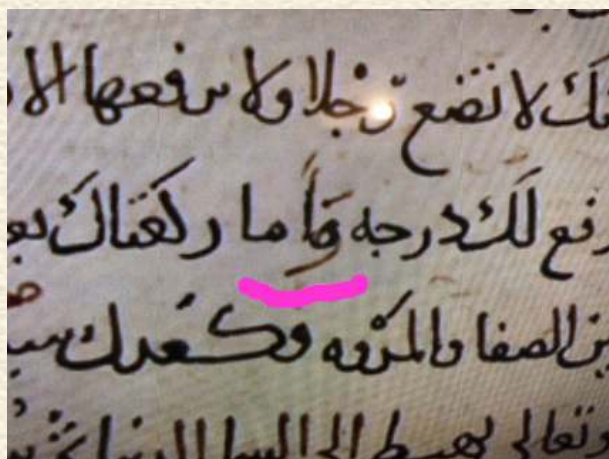 لا تضع رجلا ولا يرفعها الا
رفع لك درجه واما ركعتاك
الصفا والمروه
وتعالى يهبط الى السما الدنيا